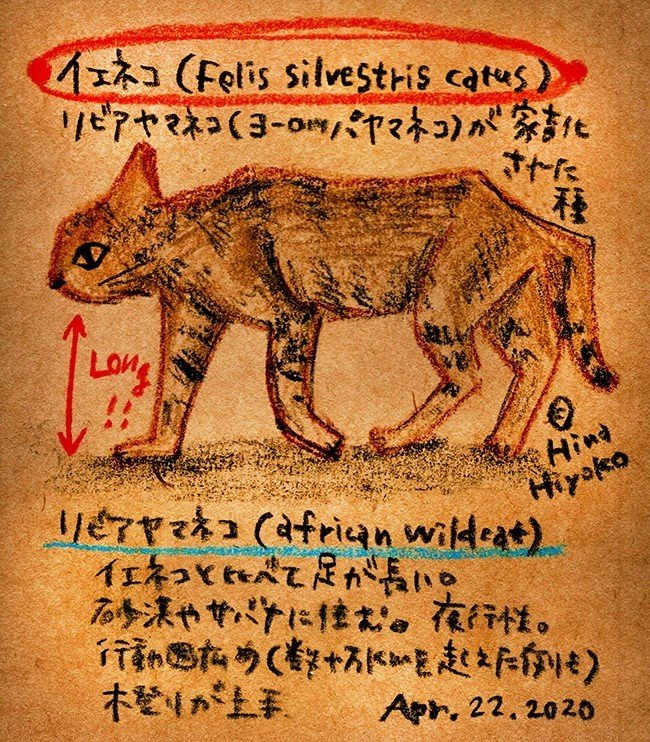 イエネコ (Felis silvestris catus)
リビアヤマネコ (ヨーロッパヤマネコ) が 家畜化
された
種
Long
!!
Hina
Hiyoko
リビアヤマネコ (african wildcat)
イエネコと比べて足が長い。
砂漠やサバナに住む。夜行性。
行動 広め (数十 を を 例も)
木登りが上手
Apr. 22. 2020